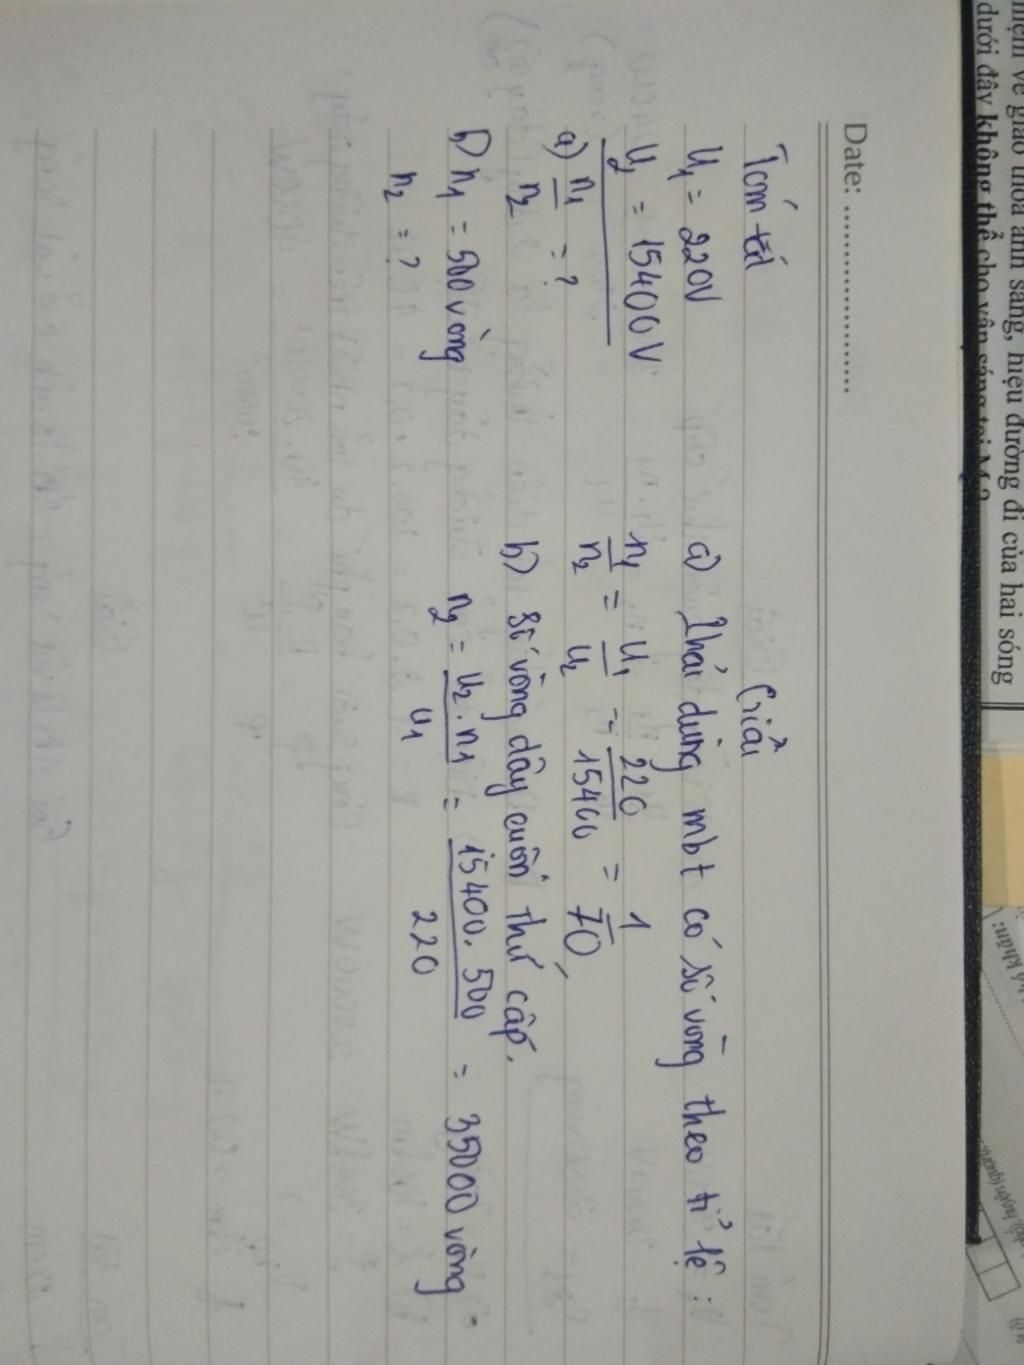 niệm về giao thoa ánh sáng, hiệu đường đi của hai sóng
dưới đây không thể cho vân sáng tại M?
Date: ......................
Tóm tắt
U₁ = 220V
U₂ = 15400V
a) n₁/n₂ = ?
b) n₁ = 500 vòng
n₂ = ?
Giải
a) Phải dùng mbt có số vòng theo tỉ lệ :
n₁/n₂ = U₁/U₂ = 220/15400 = 1/70
b) số vòng dây cuộn thứ cấp.
n₂ = U₂.n₁/U₁ = 15400.500/220 = 35000 vòng